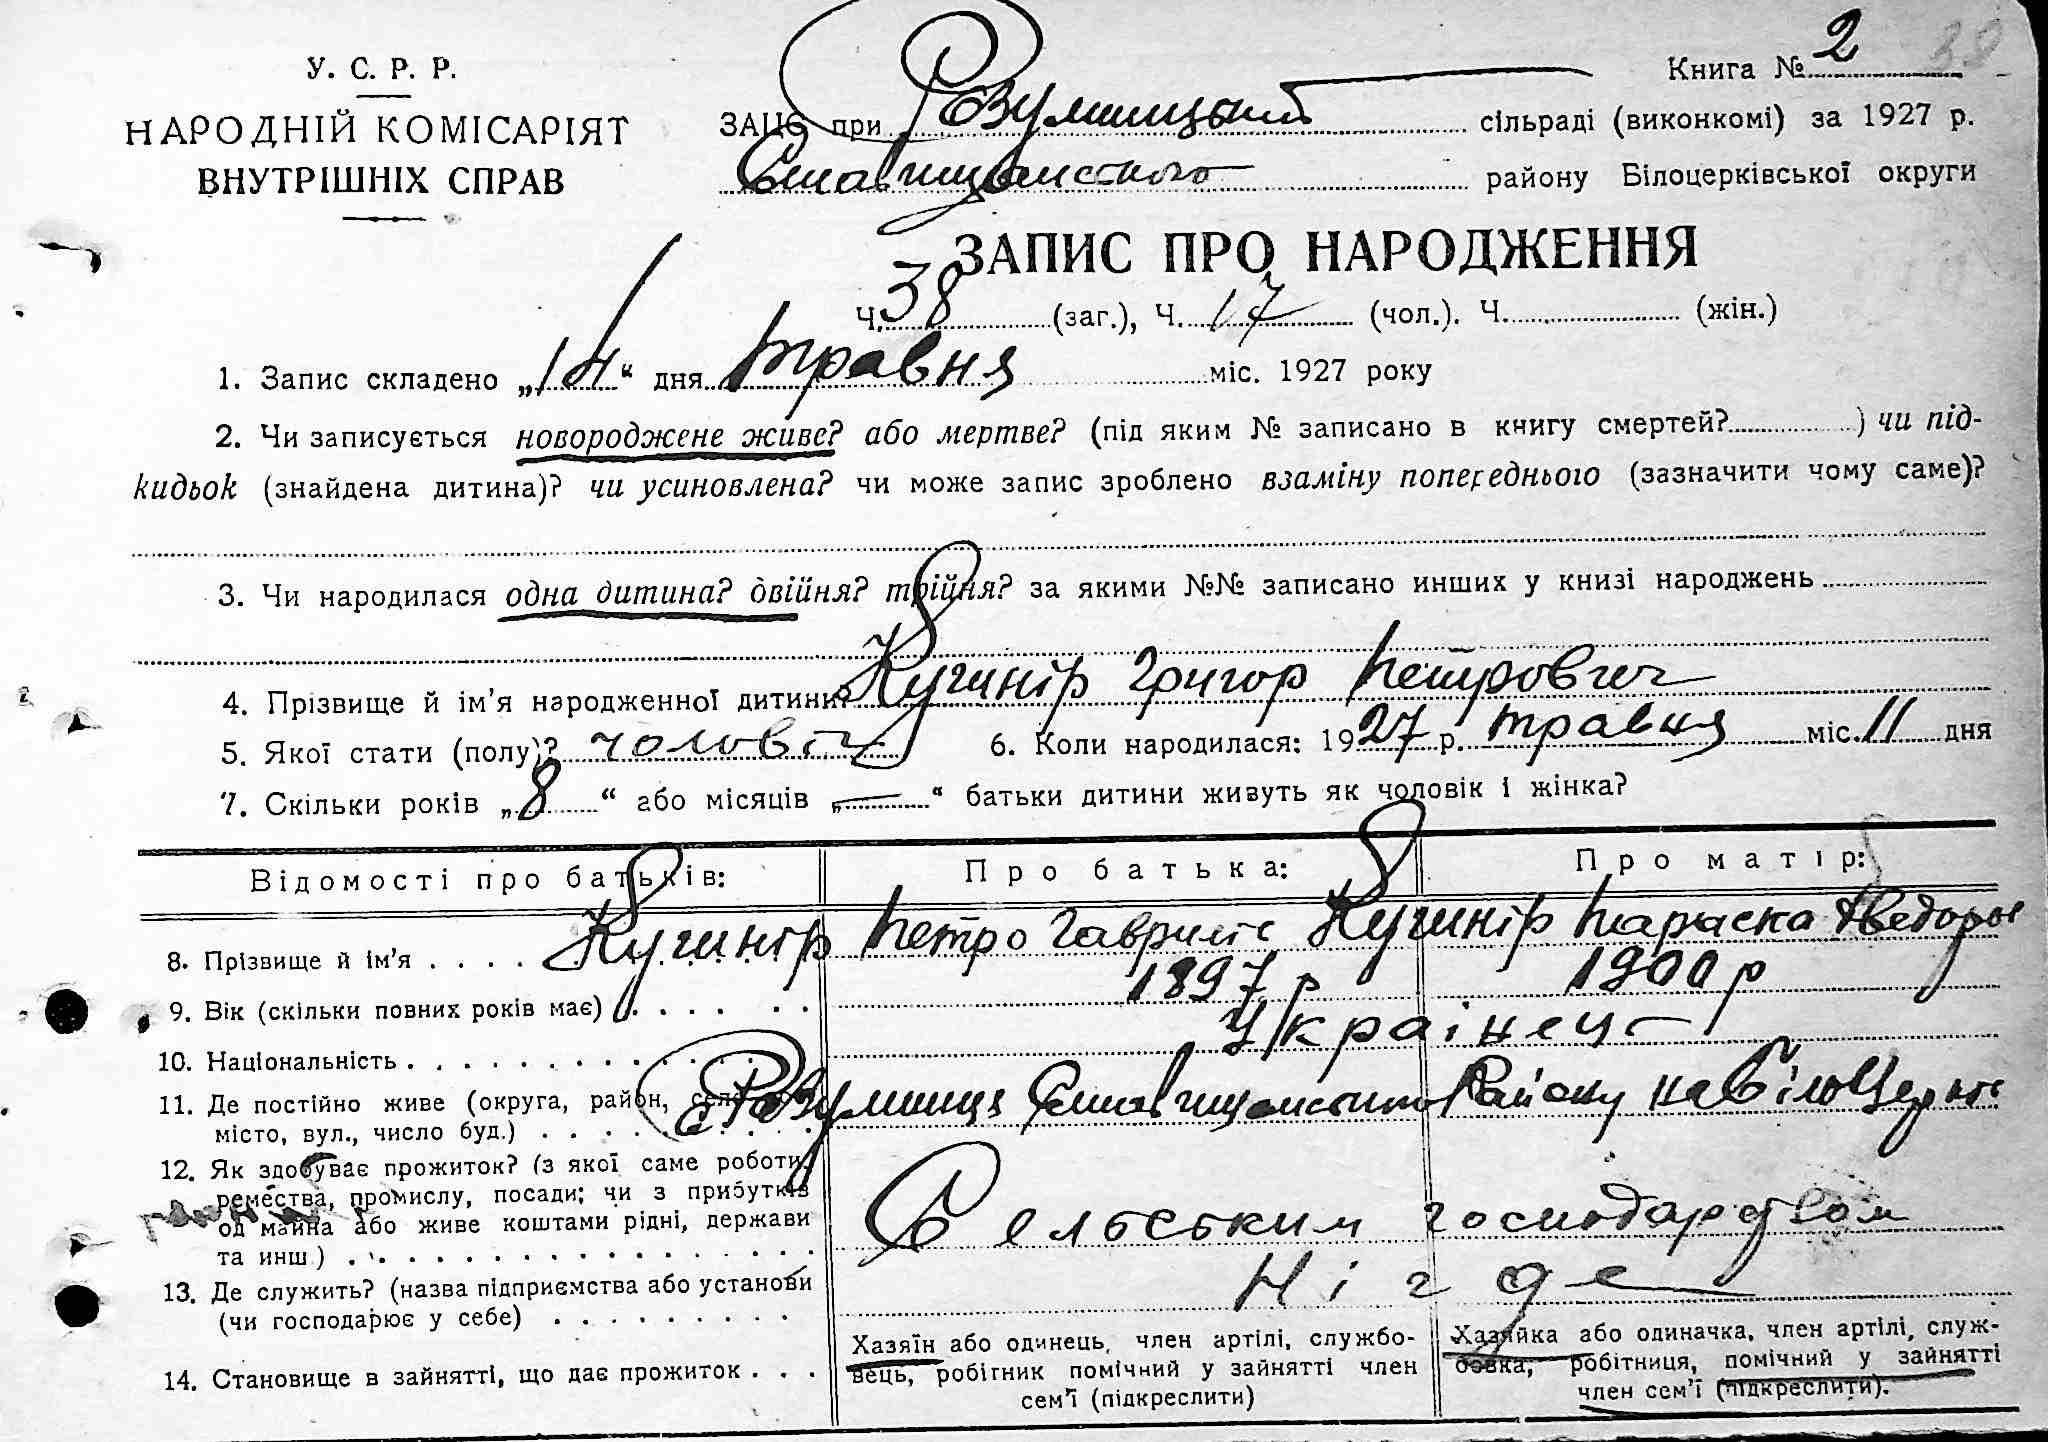 У. С. Р. Р.
НАРОДНІЙ КОМІСАРІЯТ
ВНУТРІШНІХ СПРАВ
Книга № 2 39
ЗАЦС при Розумницькій сільраді (виконкомі) за 1927 р.
Ставищанського району Білоцерківської округи
ЗАПИС ПРО НАРОДЖЕННЯ
Ч. 38 (заг.), Ч. 17 (чол.). Ч. (жін.)
1. Запис складено „14“ дня травня міс. 1927 року
2. Чи записується новороджене живе? або мертве? (під яким № записано в книгу смертей? ) чи під-
кидьок (знайдена дитина)? чи усиновлена? чи може запис зроблено взаміну попереднього (зазначити чому саме)?
3. Чи народилася одна дитина? двійня? трійня? за якими №№ записано инших у книзі народжень
4. Прізвище й ім'я народженної дитини? Кушнір Григор Петрович
5. Якої стати (полу)? чоловіч 6. Коли народилася: 1927 р. травня міс. 11 дня
7. Скільки років „8“ або місяців „—“ батьки дитини живуть як чоловік і жінка?
Відомості про батьків: Про батька: Про матір:
8. Прізвище й ім'я . . . . Кушнір Петро Гаврилів Кушнір Параска Хведоров
9. Вік (скільки повних років має) . . . . . . 1897 р 1900 р
10. Національність . . . . . . . . . . . . Українец
11. Де постійно живе (округа, район, село,
місто, вул., число буд.) . . . . . . . . Розумниця Ставищанського Району на Білоцерк
12. Як здобуває прожиток? (з якої саме роботи,
ремества, промислу, посади; чи з прибутків
од майна або живе коштами рідні, держави
та инш.) . . . . . . . . . . . . . . Сельським господарством
13. Де служить? (назва підприємства або установи
(чи господарює у себе) . . . . . . . . . Нігде
14. Становище в зайнятті, що дає прожиток . . .
Хазяїн або одинець, член артілі, службо-
вець, робітник помічний у зайнятті член
сем'ї (підкреслити)
Хазяйка або одиначка, член артілі, служ-
бовка, робітниця, помічний у зайнятті
член сем'ї (підкреслити).